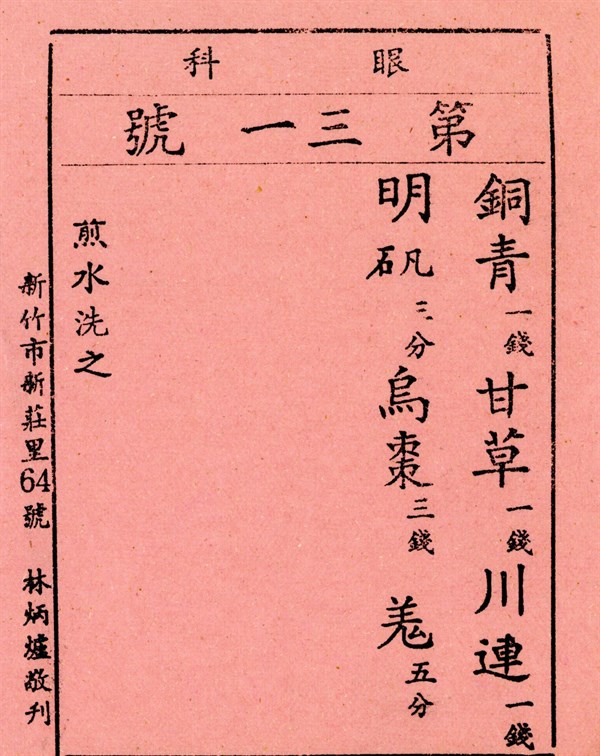 眼科
第三一號
銅青一錢甘草一錢川連一錢
明矾三分烏棗三錢羗五分
煎水洗之
新竹市新莊里64號 林炳爐敬刊